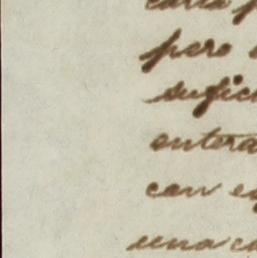 carta p
pero
sufici
entera
con e
una co